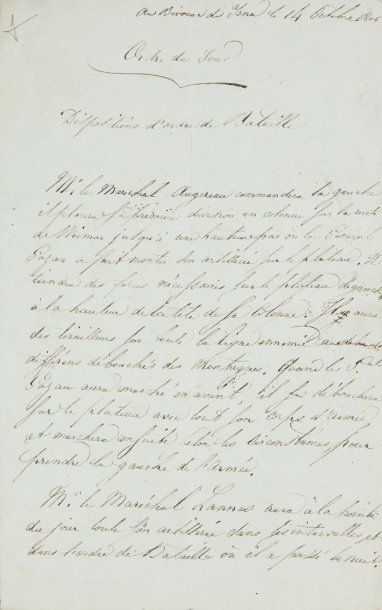 au Bivouac de Jena le 14 Octobre 1806
Ordre du Jour
Dispositions d'ordre de Bataille
Mr. le Maréchal Augereau commandera la gauche
il placera sa première division en colonne sur la route
de Weimar jusqu'à une hauteur par où le Général
Gazan a fait monter son artillerie sur le plateau. Il
tiendra des forces nécessaires sur le plateau de gauche
à la hauteur de la tête de sa colonne. Il y aura
des tirailleurs sur toute la ligne ennemie aux
différens débouchés des montagnes. Quand le G.al
Gazan aura marché en avant il fera déboucher
sur le plateau avec tout son corps d'armée
et marchera ensuite selon les circonstances, pour
prendre la gauche de l'armée.
Mr. le Maréchal Lannes aura à la pointe
du jour toute son artillerie dans ses intervalles, et
dans l'ordre de Bataille où il a passé la nuit.